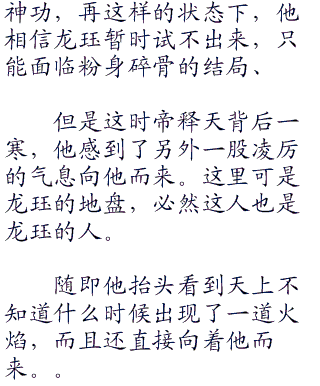 神功，再这样的状态下，他
相信龙珏暂时试不出来，只
能面临粉身碎骨的结局、
但是这时帝释天背后一
寒，他感到了另外一股凌厉
的气息向他而来。这里可是
龙珏的地盘，必然这人也是
龙珏的人。
随即他抬头看到天上不
知道什么时候出现了一道火
焰，而且还直接向着他而
来。。